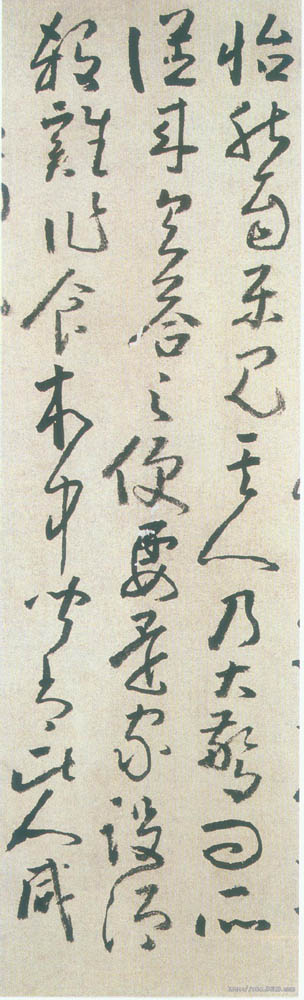 怡然自樂見其人乃大驚問所
從來具答之便要還家設酒
殺雞作食村中聞有此人咸